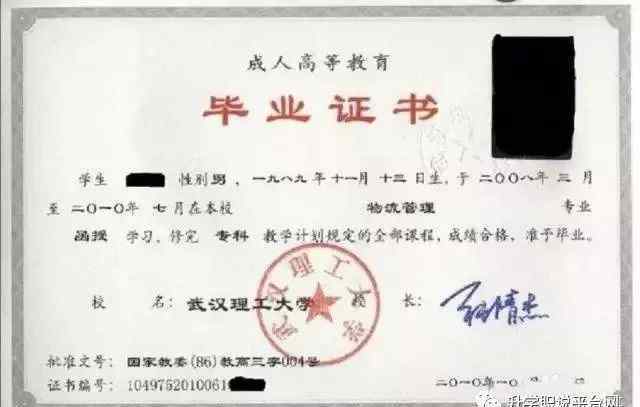 成人高等教育
毕业证书
学生 性别男，一九八九年十一月十三日生，于二〇〇八年三月
至二〇一〇年七月在本校 物流管理 专业
函授 学习，修完 专科 教学计划规定的全部课程，成绩合格，准予毕业。
武汉理工大学
校 名：武汉理工大学 校 长：
批准文号：国家教委(86)教高三字004号
证书编号：1049752010061
二〇一〇年